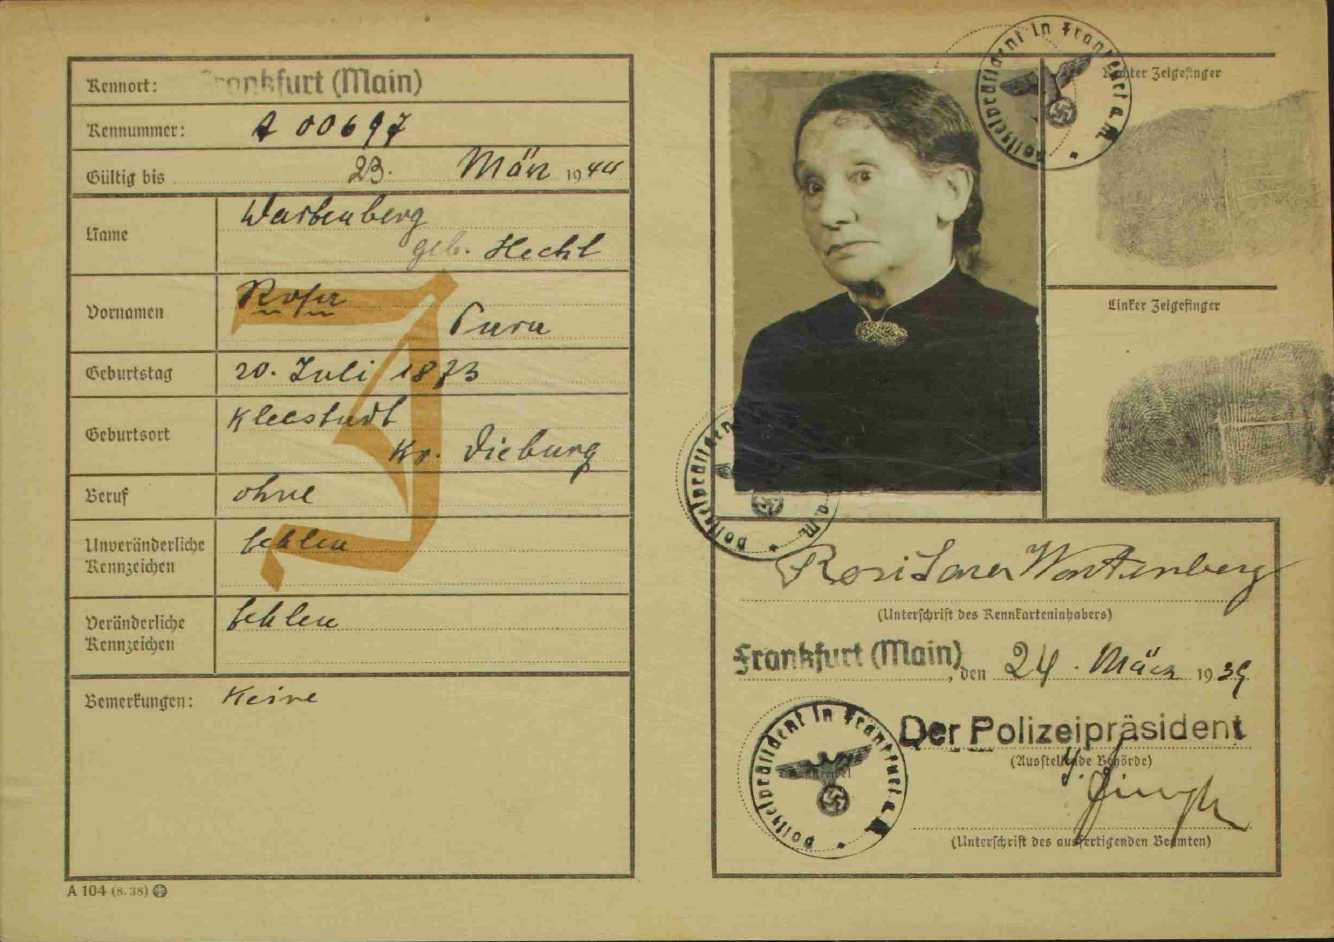 Kennort: Frankfurt (Main)
Kennummer: A 00697
Gültig bis 23. März 1944
Name Wartenberg
geb. Hecht
Vornamen Rosa
Sara
Geburtstag 20. Juli 1873
Geburtsort Kleestadt
Kr. Dieburg
Beruf ohne
Unveränderliche Kennzeichen fehlen
Veränderliche Kennzeichen fehlen
Bemerkungen: Keine
J
A 104 (8. 38)
Rechter Zeigefinger
Linker Zeigefinger
Polizeipräsident in Frankfurt a. M.
Polizeipräsident a. M.
Rosi Sara Wartenberg
(Unterschrift des Kennkarteninhabers)
Frankfurt (Main), den 24. März 1939
Polizeipräsident in Frankfurt a. M.
Der Polizeipräsident
(Ausstellende Behörde)
(Unterschrift des ausfertigenden Beamten)